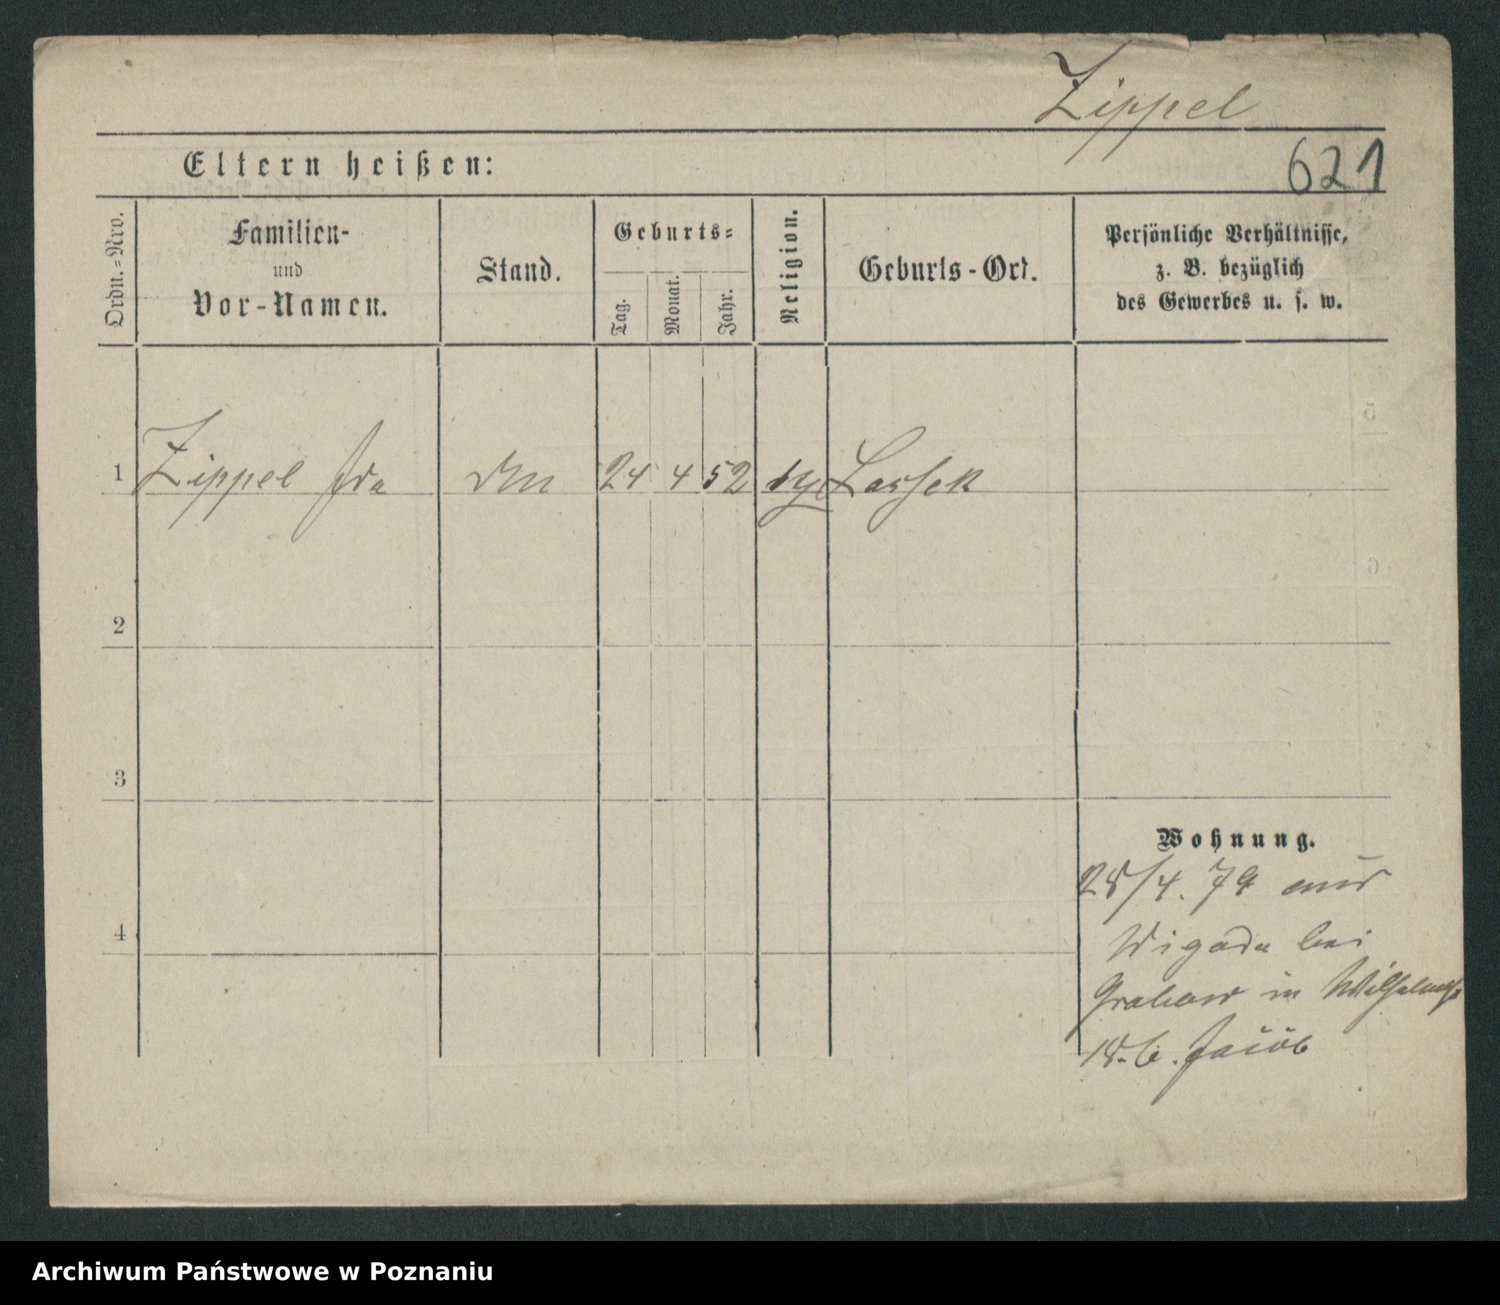 Zippel
Eltern heißen:
621
Ordn.-Nro.
Familien-
und
Vor-Namen.
Stand.
Geburts-
Tag.
Monat.
Jahr.
Religion.
Geburts-Ort.
Persönliche Verhältnisse,
z. B. bezüglich
des Gewerbes u. s. w.
1 Zippel Ida 24 4 52
2
3
4
Wohnung.
28/4. 79 aus
bei
Grabow in
18.6.
Archiwum Państwowe w Poznaniu